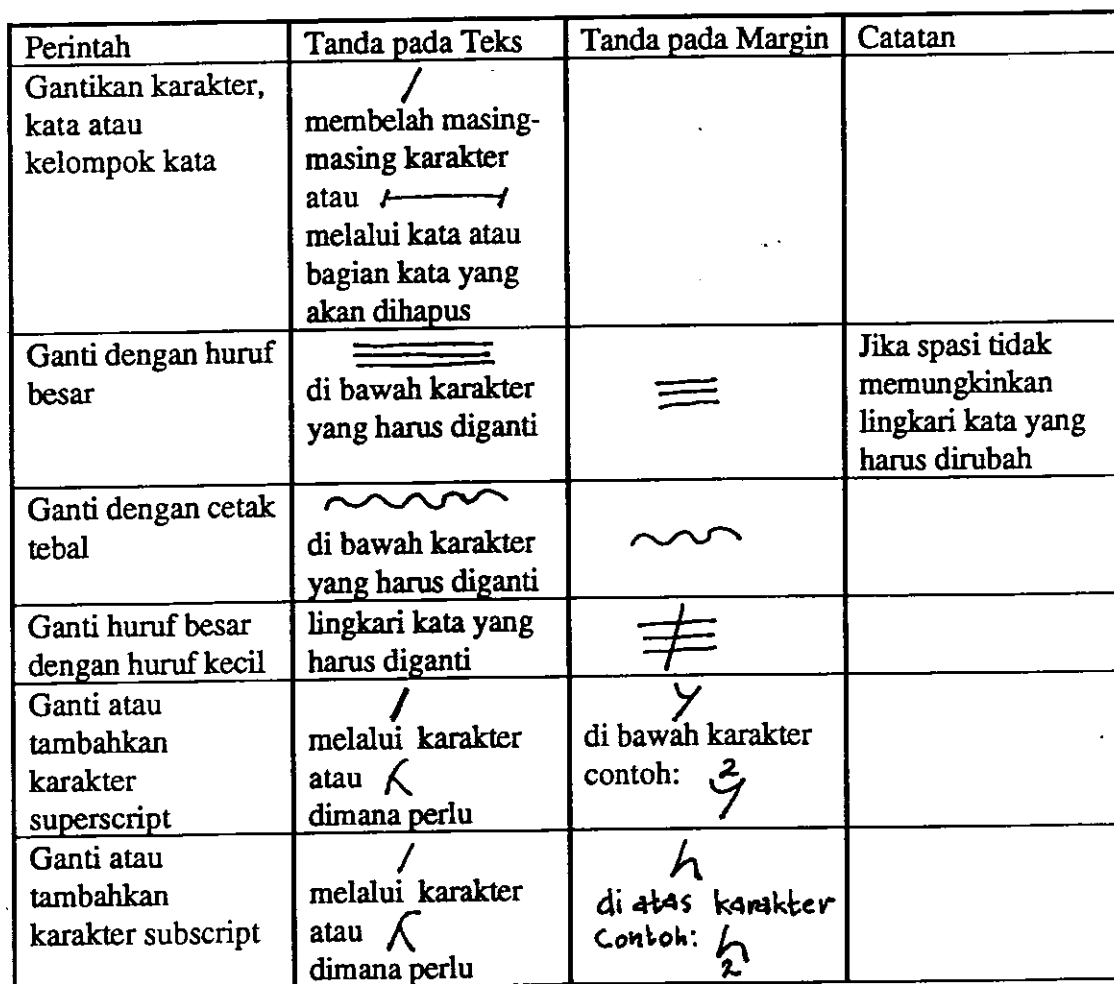 Perintah
Tanda pada Teks
Tanda pada Margin
Catatan
Gantikan karakter,
kata atau
kelompok kata
/
membelah masing-
masing karakter
atau
melalui kata atau
bagian kata yang
akan dihapus
Ganti dengan huruf
besar
di bawah karakter
yang harus diganti
Jika spasi tidak
memungkinkan
lingkari kata yang
harus dirubah
Ganti dengan cetak
tebal
di bawah karakter
yang harus diganti
Ganti huruf besar
dengan huruf kecil
lingkari kata yang
harus diganti
Ganti atau
tambahkan
karakter
superscript
/
melalui karakter
atau
dimana perlu
di bawah karakter
contoh: 2
Ganti atau
tambahkan
karakter subscript
/
melalui karakter
atau
dimana perlu
di atas karakter
Contoh:
2